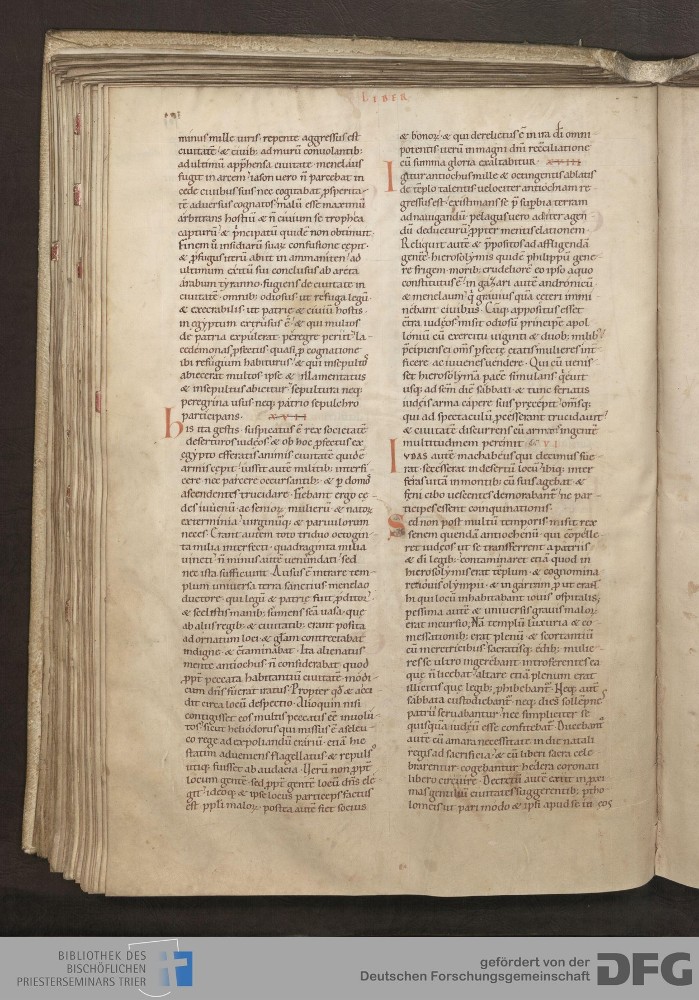 LIBER
minus mille uiris· repente aggressus est
ciuitatē· & ciuib; ad murū conuolantib;
ad ultimū apphensa ciuitate· menelaus
fugit in arcem· iason uero ñ parcebat in
cede ciuibus suis· nec cogitabat psperita
tē aduersus cognatos malū esse maximū
arbitrans hostiū & ñ ciuium se trophea
capturū· & pncipatū quidē non obtinuit·
finem ū insidiarū suaꝝ confusionē cepit·
& pfugus iterū abiit in ammaniten· ad
ultimum exitiū sui conclusus ab areta
arabum tyranno· fugiens de ciuitate in
ciuitatē· omnib; odiosus ut refuga legū
& execrabilis· ut patrię & ciuiū hostis·
in egyptum extrusus ē· & qui multos
de patria expulerat· peregre periit· la
cedemonas pfectus· quasi p cognatione
ibi refugium habiturus· & qui insepultos
abiecerat multos· ipse & illamentatus
& insepultus abicitur· sepultura neq;
peregrina usus neq; patrio sepulchro
participans· XVII
His ita gestis· suspicatus ē rex societatē
deserturos iudęos· & ob hoc pfectus ex
egypto efferatis animis ciuitatē quidē
armis cepit· iussit autē militib; interfi
cere nec parcere occursantib; & p domos
ascendentes trucidare· Fiebant ergo cę
des iuuenū ac senioꝝ· mulierū & natoꝝ
exterminia· uirginūq; & paruulorum
neces· Erant autem toto triduo octogin
ta milia interfecti· quadraginta milia
uincti· ñ minus autē uenundati· sed
nec ista sufficiunt· Ausus ē intrare tem
plum uniuersa terra sanctius· menelao
ductore· qui legū & patrię fuit pditor·
& scelestis manib; sumens scā uasa· quę
ab aliis regib; & ciuitatib; erant posita
ad ornatum loci & glam· contrectabat
indigne· & cōtaminabat· Ita alienatus
mente antiochus ñ considerabat quod
ppt peccata habitantiū ciuitatē· modi
cum dñs fuerat iratus· Propter qđ & acci
dit circa locū despectio· Alioquin nisi
contigisset eos multis peccatis eē inuolu
tos· sicut heliodorus qui missus ē a seleu
co rege ad expoliandū erariū· etiā hic
statim adueniens flagellatus & repulsus
utiq; fuisset ab audacia· Uerū non ppt
locum gentē· sed ppt gentē locū dñs ele
git· ideoq; & ipse locus particeps factus
est ppli maloꝝ· postea autē fiet socius
& bonoꝝ· & qui derelictus ē in ira di omni
potentis· iterū in magni dñi recōciliatione
cū summa gloria exaltabitur· XVIII
Igitur antiochus mille & octingentis ablatis
de tēplo talentis· uelociter antiochiam re
gressus est· existimans se p supbia terram
ad nauigandū· pelagus uero ad iter agen
dū deducturū ppter mentis elationem·
Reliquit autē & ppositos ad affligendā
gentē· hierosolymis quidē philippū gene
re frigem· morib; crudeliorē eo ipso a quo
constitutus ē· in gazari autē andronicū
& menelaum· q grauius quā ceteri immi
nebant ciuibus· Cūq; appositus esset
cōtra iudęos· misit odiosū principē apol
loniū cū exercitu uiginti & duob; milib;
pcipiens ei oms pfectę etatis mulieres int
ficere· ac iuuenes uendere· Qui cū uenis
set hierosolymā pacē simulans· qeuit
usq; ad scm diē sabbati· & tunc feriatis
iudęis arma capere suis precepit· omsq;
qui ad spectaculū pcesserant trucidauit
& ciuitatē discurrens cū armatis ingentē
multitudinem peremit·
IUDAS autē machabęus qui decimus fue
rat· secesserat in desertū locū· ibiq; inter
feras uitā in montib; cū suis agebat· &
fęni cibo uescentes demorabant· ne par
ticipes essent coinquinationis·
Sed non post multū temporis misit rex
senem quendā antiochenū· qui cōpelle
ret iudęos ut se transferrent a patriis
& di legib; contaminaret etiā quod in
hierosolimis erat tēplum· & cognomina
ret iouis olympii· & in garizim put erant
hi qui locū inhabitabant iouis ospitalis·
pessima autē & uniuersis grauis maloꝝ
erat incursio· Nā templū luxuria & co
messationib; erat plenū· & scortantiū
cū meretricibus· sacratisq; ędib; mulie
res se ultro ingerebant· introferentes ea
quę ñ licebat· altare etiā plenum erat
illicitis quę legib; phibebant· Neq; autē
sabbata custodiebant· neq; dies sollepnes
patrū seruabantur· nec simpliciter se
quisquā iudęū esse confitebat· Ducebant
autē cū amara necessitate in die natali
regis ad sacrificia· & cū liberi sacra cele
brarentur· cogebantur hedera coronati
libero circuire· Decretū autē exiit in pxi
mas gentiliū ciuitates· suggerentib; ptho
lomeis· ut pari modo & ipsi apud se in eos
BIBLIOTHEK DES
BISCHÖFLICHEN
PRIESTERSEMINARS TRIER
gefördert von der
Deutschen Forschungsgemeinschaft
DFG